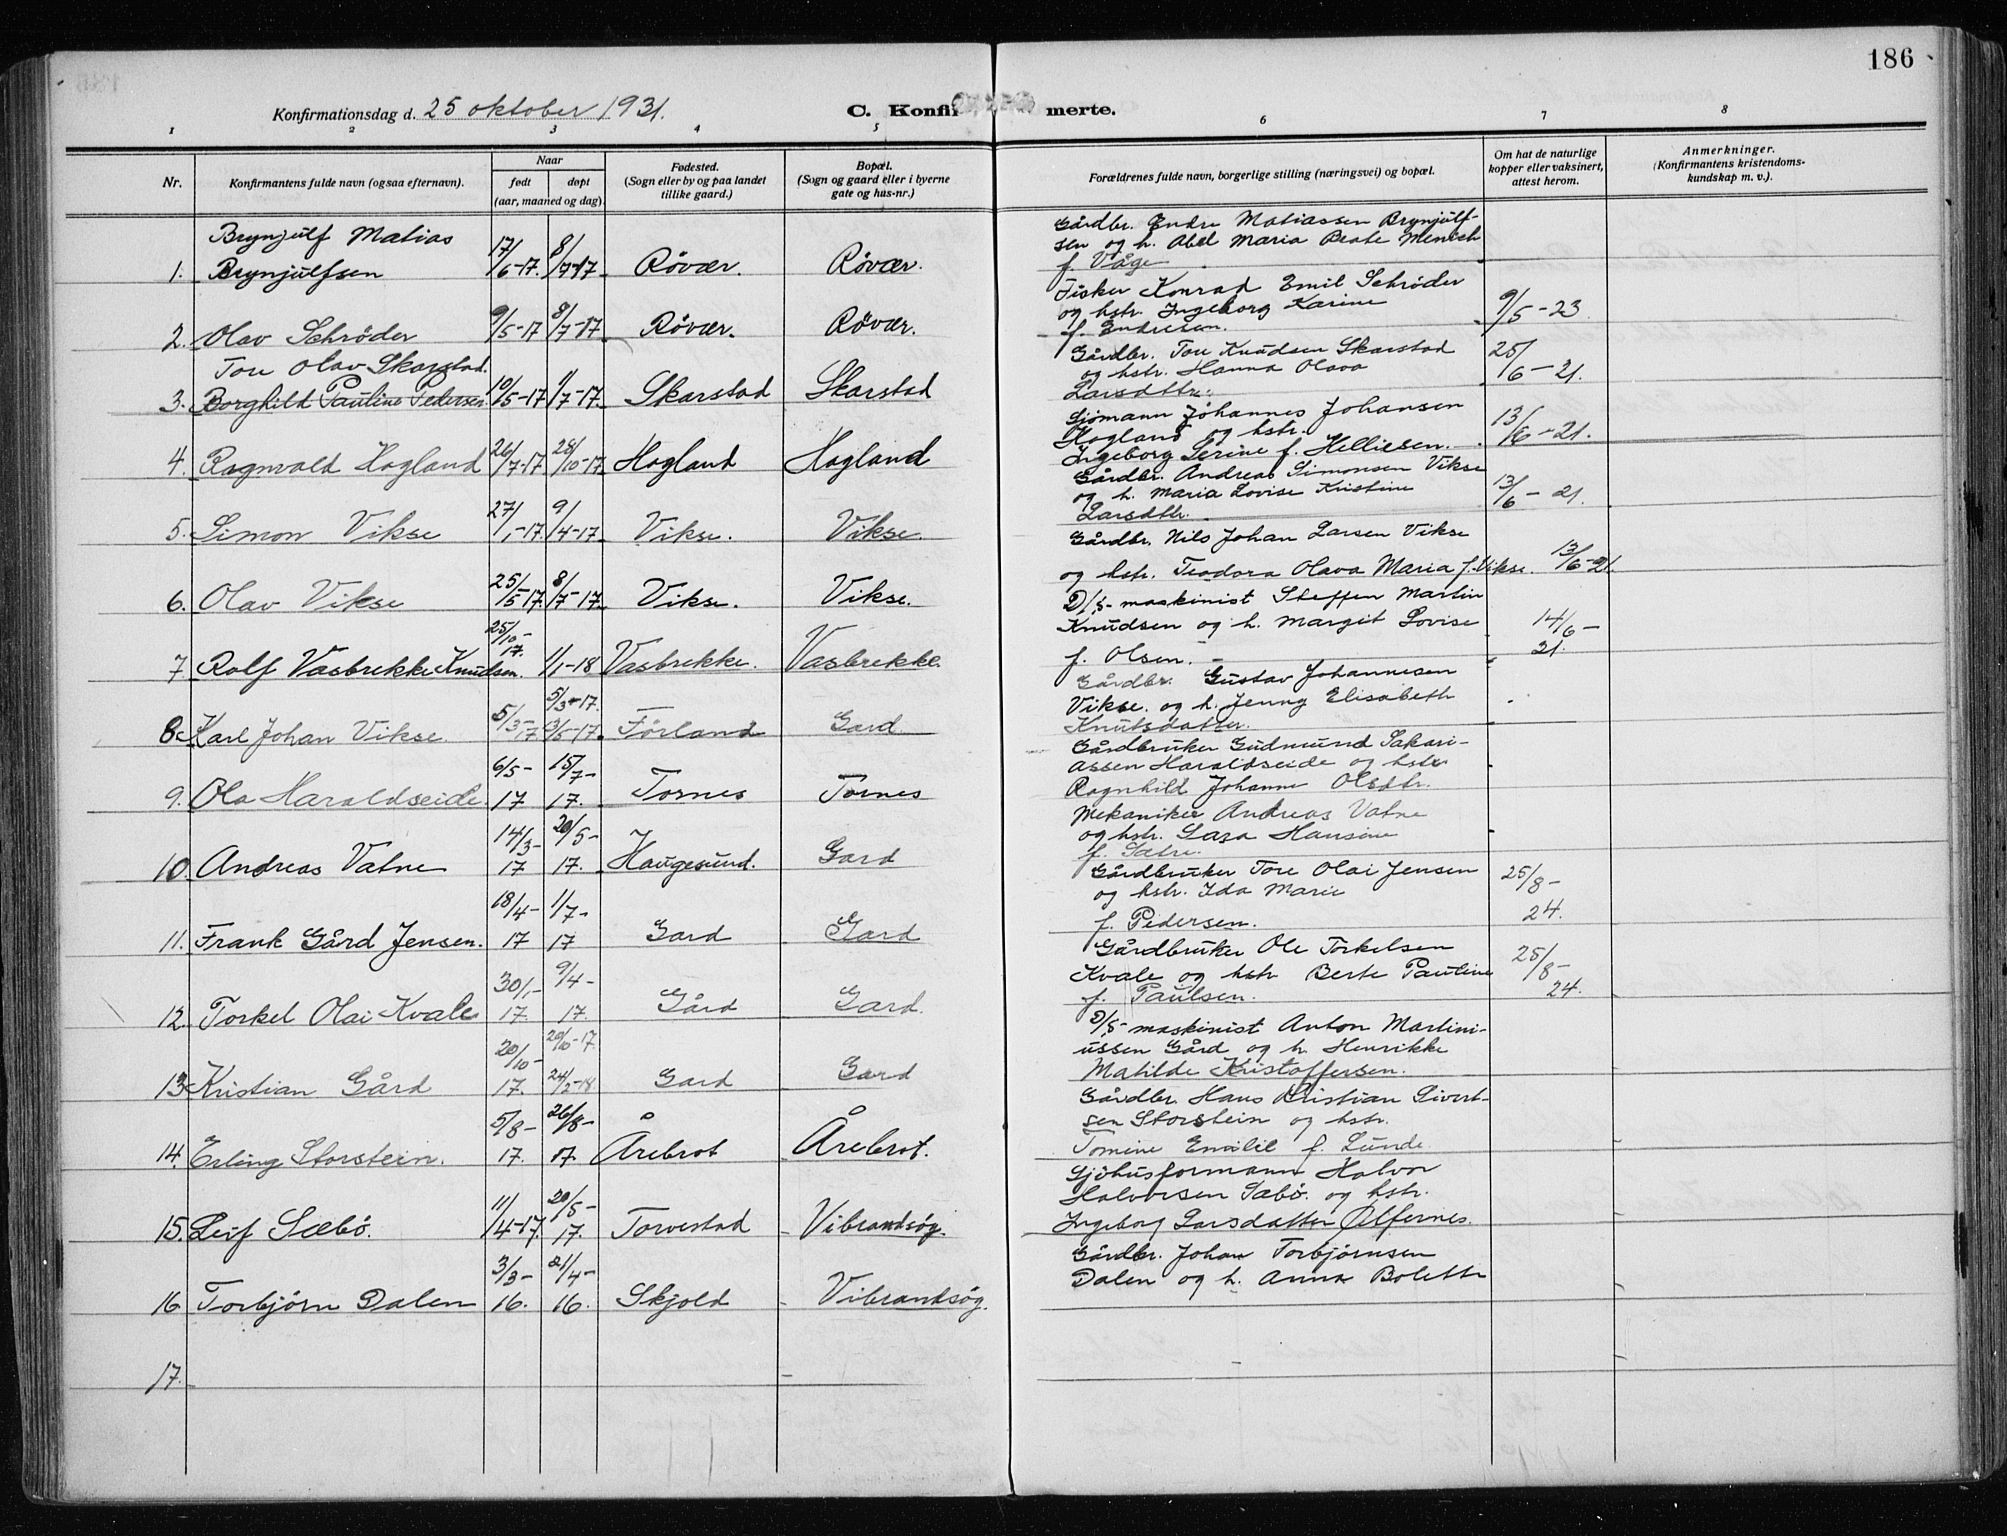 186
Konfirmationsdag d. 25 oktober 1931. C. Konfirmerte.
1 2 3 4 5 6 7 8
Nr. Konfirmantens fulde navn (ogsaa efternavn). Naar født døpt (aar, maaned og dag). Fødested. (Sogn eller by og paa landet tillike gaard.) Bopæl. (Sogn og gaard eller i byerne gate og hus-nr.) Forældrenes fulde navn, borgerlige stilling (næringsvei) og bopæl. Om hat de naturlige kopper eller vaksinert, attest herom. Anmerkninger. (Konfirmantens kristendoms- kundskap m. v.).
1. Brynjulf Matias Brynjulfsen 17/6-17. 8/7-17 Røvær. Røvær. Gårdbr. Endre Matiassen Brynjulf-
sen og h. Abel Maria Beate
f. Våge
2. Olav Schrøder 9/5-17 8/7-17 Røvær. Røvær. Fisker Konrad Emil Schrøder
og hstr. Ingeborg Karine
f. Endresen. 9/5-23
3. Tore Olav Skarstad. Borghild Pauline Pedersen. 10/5-17 1/7-17. Skarstad Skarstad Gårdbr. Tore Knudsen Skarstad
og hstr. Hanna Olava
Larsdttr. 25/6-21.
4. Ragnvald Hogland 26/7-17 28/10-17 Hogland Hogland Sjømann Johannes Johansen
Hogland og hstr.
Ingeborg Serine f. Helliesen. 13/6-21.
5. Simon Vikse 27/1-17 9/4-17 Vikse. Vikse. Gårdbr. Andreas Simonsen Vikse
og h. Maria Lovise Kristine
Larsdttr. 13/6-21.
6. Olav Vikse 25/5-17. 8/7-17. Vikse. Vikse. Gårdbr. Nils Johan Larsen Vikse
og hstr. Teodora Olava Maria f. Vikse. 13/6-21.
7 Rolf Vasbrekke Knudsen. 25/10-17. 1/1-18 Vasbrekke. Vasbrekke. D/S-maskinist Steffen Martin
Knudsen og h. Margit Lovise
f. Olsen. 14/6-21.
8. Karl Johan Vikse. 5/3-17 5/3-17. 3/6-17. Førland Gard. Gårdbr. Gustav Johannesen
Vikse. og h. Jenny Elisabeth
Knutsdatter.
9. Ola Haraldseide 6/5-17 15/7-17. Tornes Tornes Gårdbruker Gudmund Sakari-
assen Haraldseide og hstr
Ragnhild Johanne Olsdtr.
10. Andreas Vatne 14/3-17 20/5-17. Haugesund. Gard Mekaniker Andreas Vatne
og hstr. Sara Hansine
f. Sætre.
11. Frank Gård Jensen. 18/4-17 1/7-17 Gard Gard Gårdbruker Tore Olai Jensen
og hstr. Ida Marie
f. Pedersen. 25/8-24.
12. Torkel Olai Kvale 30/1-17. 9/4-17. Gård Gard. Gårdbruker Ole Torkelsen
Kvale og hstr Berte Pauline
f. Paulsen. 25/8-24.
13. Kristian Gård 20/10-17. 20/10-17. 24/2-18. Gard Gard D/S-maskinist Anton Martini-
ussen Gård og h. Henrikke
Matilde Kristoffersen.
14. Erling Storstein. 5/8-17. 26/8-17. Årebrot Årebrot. Gårdbr. Hans Kristian Sivert-
sen Storstein og hstr.
Tomine Emilie f. Lunde
15. Leif Sæbø. 11/4-17. 20/5-17. Torvestad Vibrandsøy. Sjøhusformann Halvor
Halvorsen Sæbø. og hstr.
Ingeborg Larsdatter Alfernes.
16 Torbjørn Dalen 3/3-16. 24/4-16. Skjold Vibrandsøy. Gårdbr. Johan Torbjørnsen
Dalen og h. Anna Bolette
17.